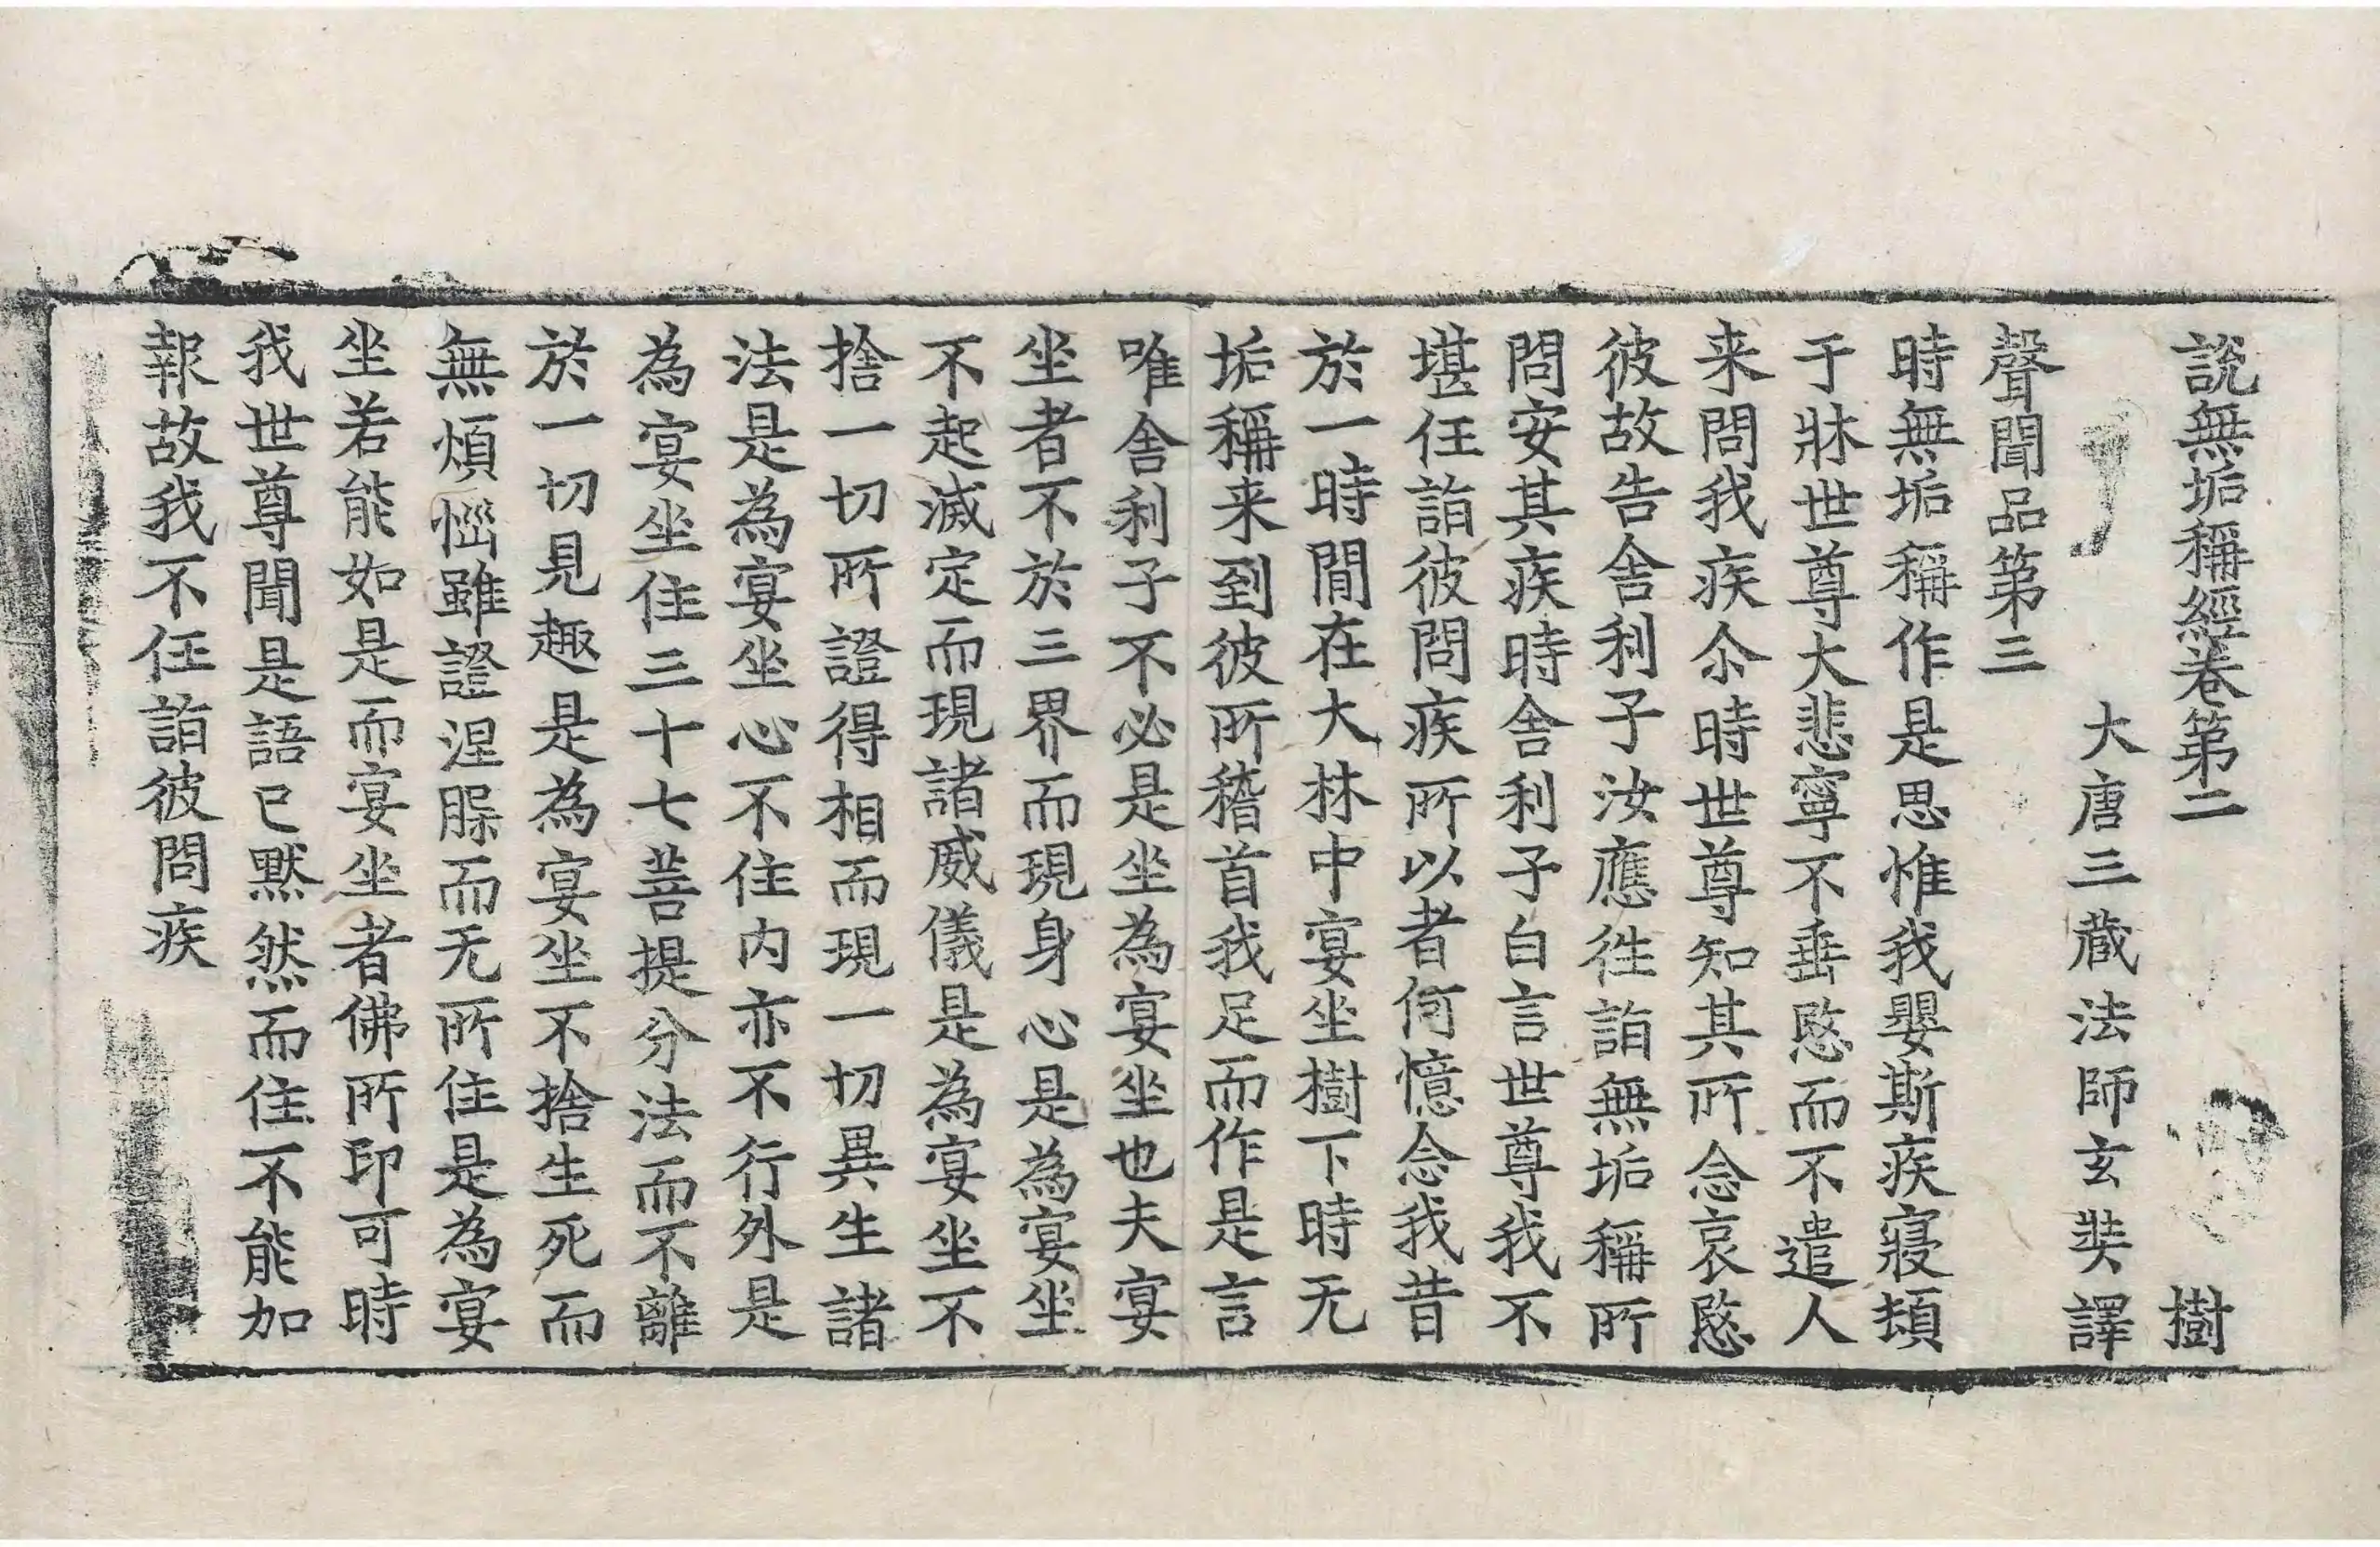 說無垢稱經卷第二 樹
大唐三蔵法師玄奘譯
聲聞品第三
時無垢稱作是思惟我嬰斯疾寢頓
于牀世尊大悲寧不垂愍而不遣人
来問我疾尒時世尊知其所念哀愍
彼故告舍利子汝應往詣無垢稱所
問安其疾時舍利子白言世尊我不
堪任詣彼問疾所以者何憶念我昔
於一時閒在大林中宴坐樹下時无
垢稱来到彼所稽首我足而作是言
唯舍利子不必是坐為宴坐也夫宴
坐者不於三界而現身心是為宴坐
不起滅定而現諸威儀是為宴坐不
捨一切所證得相而現一切異生諸
法是為宴坐心不住内亦不行外是
為宴坐住三十七菩提分法而不離
於一切見趣是為宴坐不捨生死而
無煩惱雖證涅槃而无所住是為宴
坐若能如是而宴坐者佛所印可時
我世尊聞是語已黙然而住不能加
報故我不任詣彼問疾